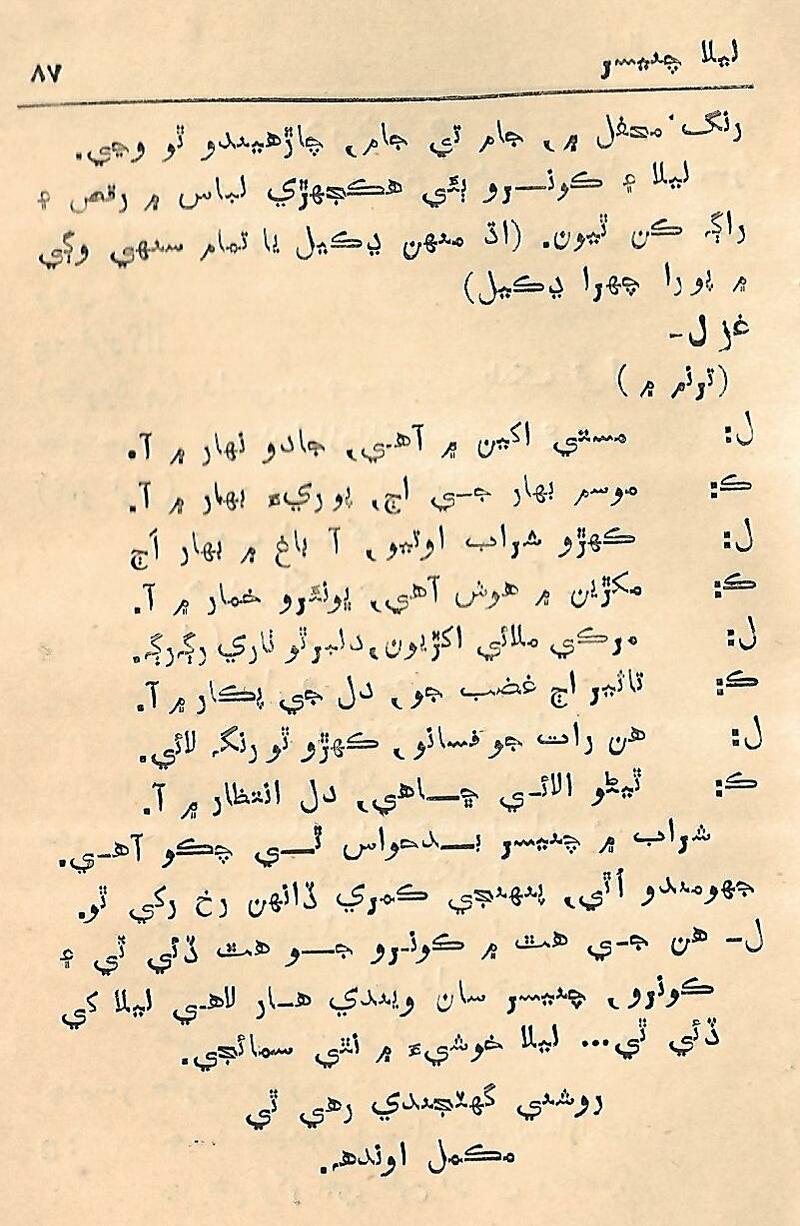 ليلا چنيسر
٨٧
رنگ محفل ۾، جام تي جام، چاڙهيندو ٿو وڃي.
ليلا ۽ ڪونرو ٻئي هڪجهڙي لباس ۾ رقص ۽
راڳ ڪن ٿيون. (اڌ منهن ڍڪيل يا تمام سنهي وڳي
۾ پورا چهرا ڍڪيل)
غزل-
(ترنم ۾)
ل: مستي اکين ۾ آهي، جادو نهار ۾ آ.
ڪ: موسم بهار جي اڄ، پوريءَ بهار ۾ آ.
ل: ڪهڙو شراب اوتيو، آ باغ ۾ بهار اَڄ
ڪ: مکڙين ۾ هوش آهي، ڀونئرو خمار ۾ آ.
ل: مرڪي ملائي اکڙيون، دلبر ٿو ٺاري رڳ رڳ.
ڪ: تاثير اڄ غضب جو، دل جي پڪار ۾ آ.
ل: هن رات جو فسانو، ڪهڙو ٿو رنگ لائي.
ڪ: ٿيڻو الائي ڇاهي، دل انتظار ۾ آ.
شراب ۾ چنيسر بدحواس ٿي چڪو آهي.
جهومندو اُٿي، پنهنجي ڪمري ڏانهن رخ رکي ٿو.
ل- هن جي هٿ ۾ ڪونرو جو هٿ ڏئي ٿي ۽
ڪونرو، چنيسر سان ويندي هار لاهي ليلا کي
ڏئي ٿي... ليلا خوشيءَ ۾ نٿي سمائجي.
روشني گهٽجندي رهي ٿي
مڪمل اونداهه.